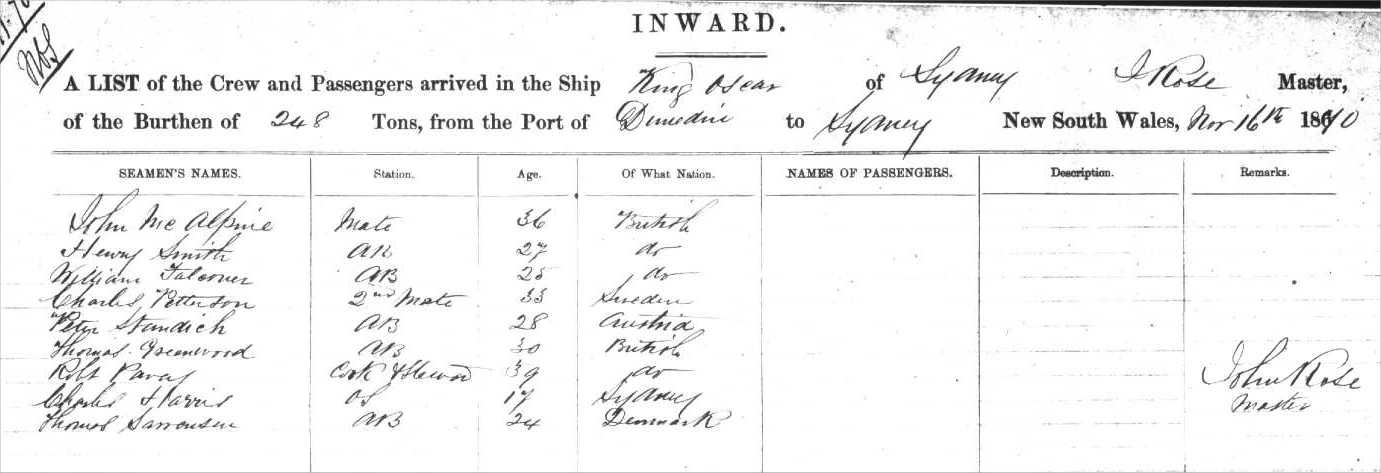 INWARD.
A LIST of the Crew and Passengers arrived in the Ship King Oscar of Sydney J Rose Master,
of the Burthen of 248 Tons, from the Port of Dunedin to Sydney New South Wales, Nov 16th 18670
SEAMEN'S NAMES. Station. Age. Of What Nation. NAMES OF PASSENGERS. Description. Remarks.
John McAlpine Mate 36 British
Henry Smith AB 27 do
William Falconer AB 25 do
Charles Petterson 2nd Mate 33 Sweden
Peter Standich AB 28 Austria
Thomas Greenwood AB 30 British
Robt Cook & Steward 39 do
Charles Harris OS 17 Sydney
Thomas Sarronsen AB 24 Denmark
John Rose
Master